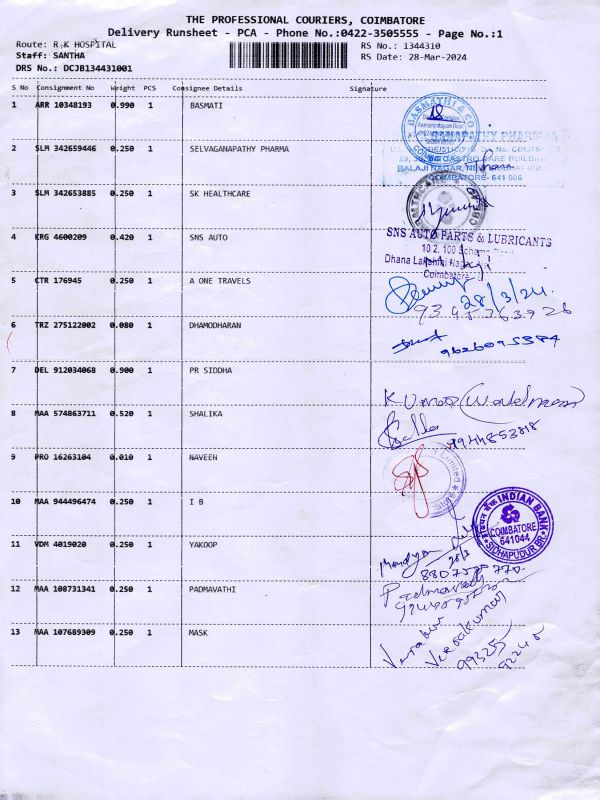 THE PROFESSIONAL COURIERS, COIMBATORE
Delivery Runsheet - PCA - Phone No.:0422-3505555 - Page No.:1
Route: R K HOSPITAL RS No.: 1344310
Staff: SANTHA RS Date: 28-Mar-2024
DRS No.: DCJB134431001
S No Consignment No Weight PCS Consignee Details Signature
1 ARR 10348193 0.990 1 BASMATI
BASMATHI & CO
2 SLM 342659446 0.250 1 SELVAGANAPATHY PHARMA
GANAPATHY PHARMA
BALAJI NAGAR,
COIMBATORE- 641 006
3 SLM 342653885 0.250 1 SK HEALTHCARE
4 KRG 4600209 0.420 1 SNS AUTO
SNS AUTO PARTS & LUBRICANTS
Coimbatore
5 CTR 176945 0.250 1 A ONE TRAVELS
28/3/24
6 TRZ 275122002 0.080 1 DHAMODHARAN
9626095384
7 DEL 912034068 0.900 1 PR SIDDHA
8 MAA 574863711 0.520 1 SHALIKA
9 PRO 16263104 0.010 1 NAVEEN
Limited
10 MAA 944496474 0.250 1 I B
INDIAN BANK
COIMBATORE
641044
SIDHAPUDUR BR.
11 VDM 4019020 0.250 1 YAKOOP
28/3
12 MAA 108731341 0.250 1 PADMAVATHI
Padmavathi
13 MAA 107689309 0.250 1 MASK